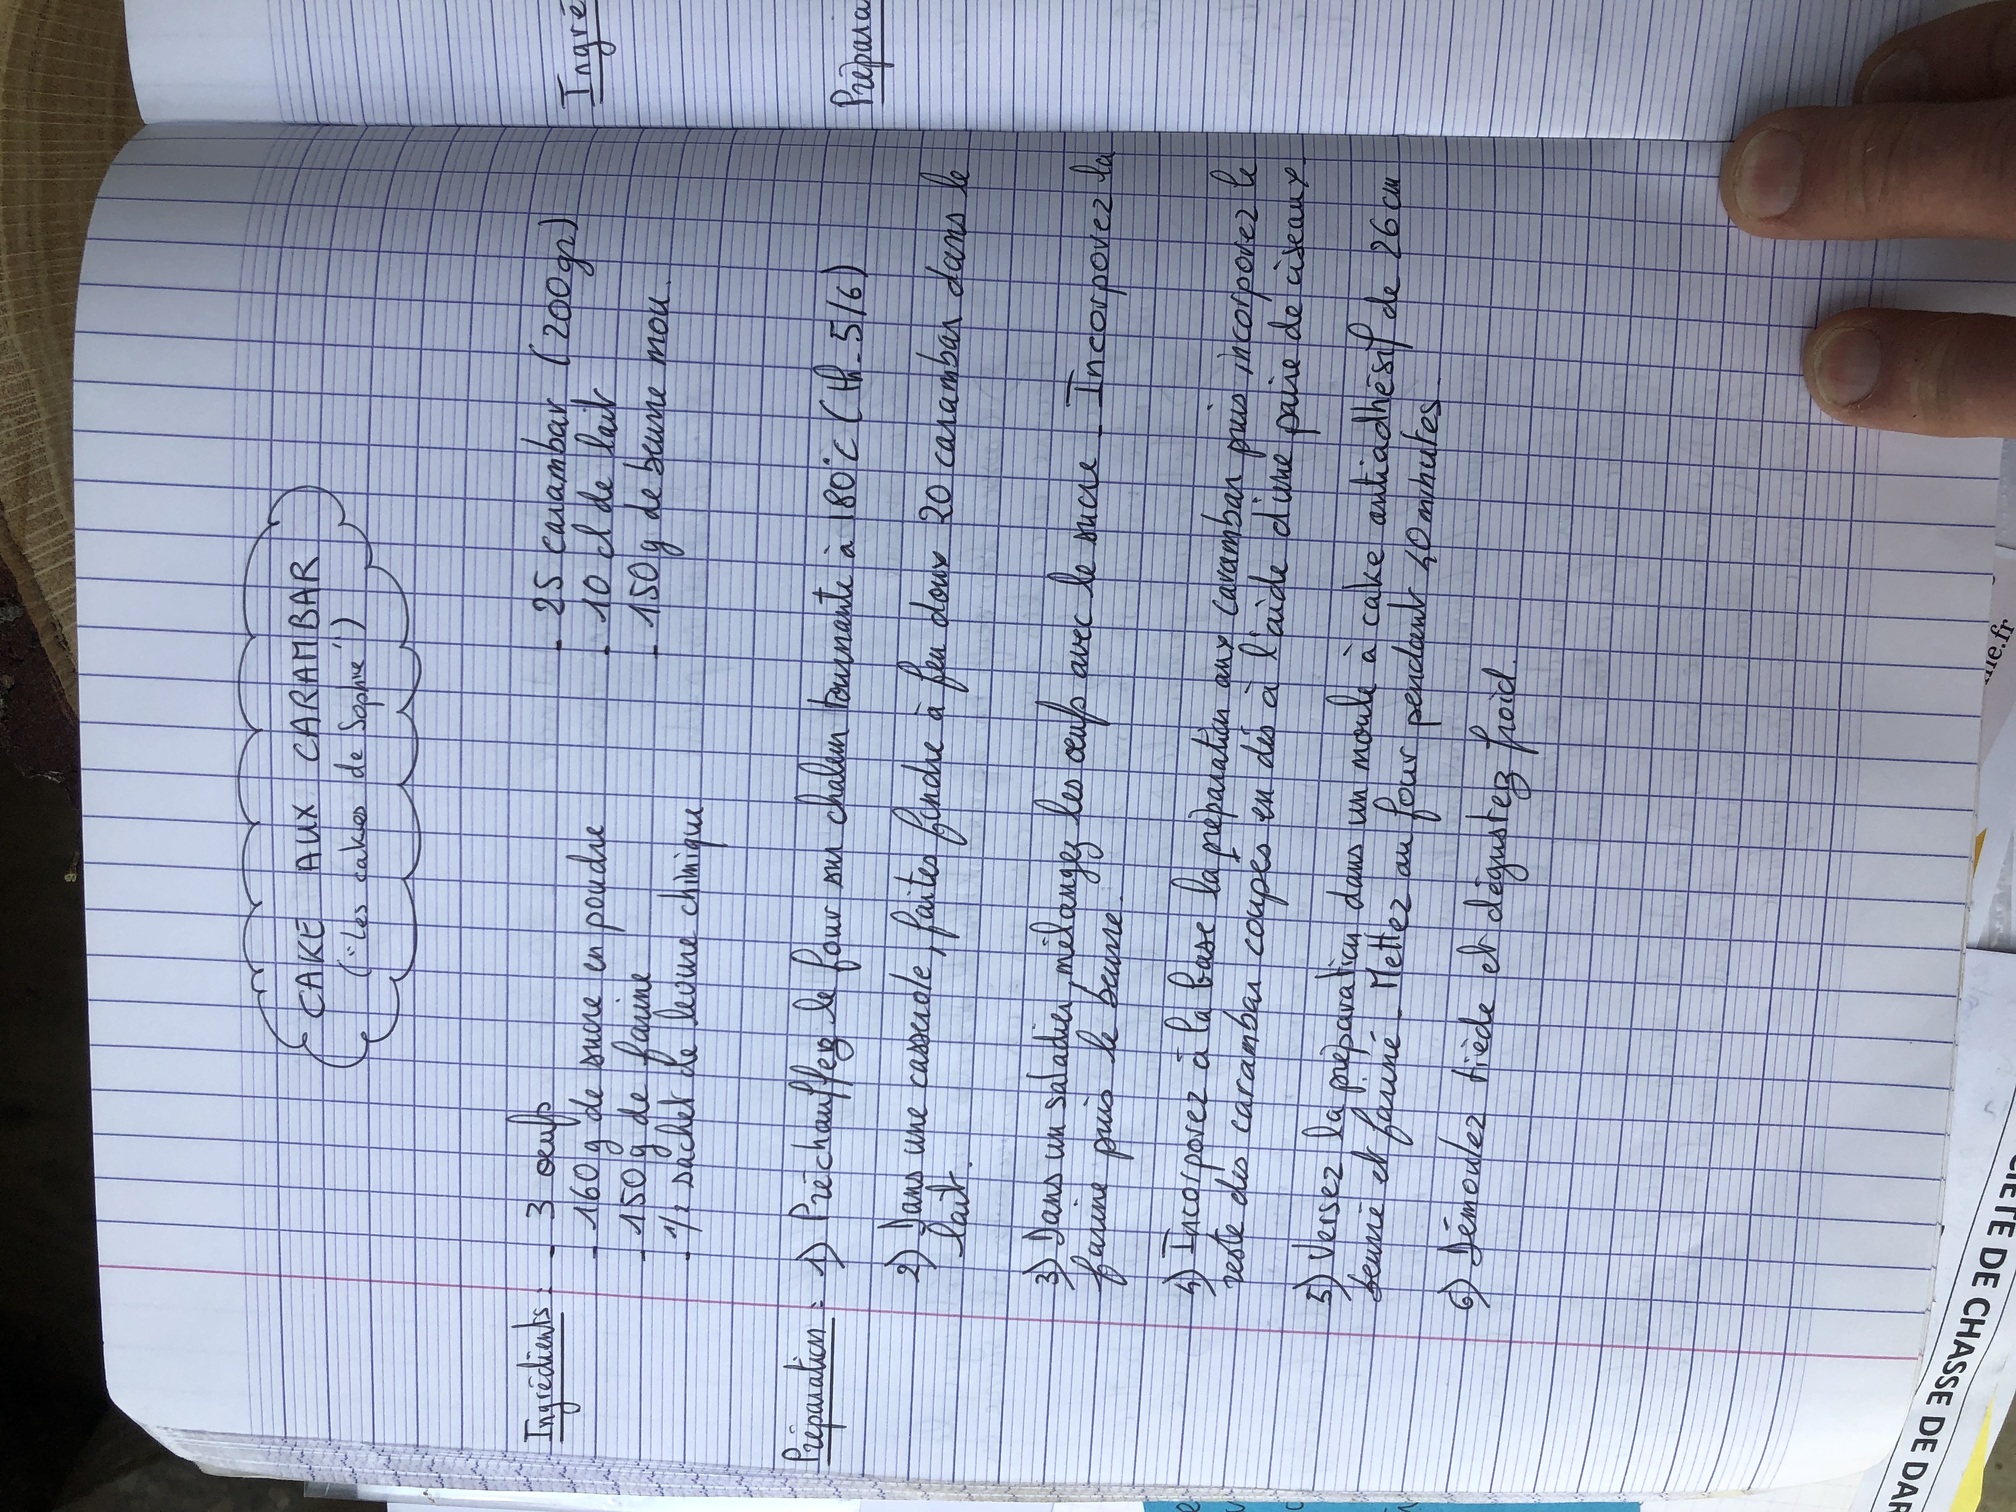 CAKE AUX CARAMBAR
("Les cakes de Sophie")
Ingrédients : - 3 œufs
- 160 g de sucre en poudre
- 150 g de farine
- 1/2 sachet de levure chimique
- 25 carambar (200gr)
- 10 cl de lait
- 150 g de beurre mou.
Préparation : 1) Préchauffez le four sur chaleur tournante à 180°C (th. 5/6)
2) Dans une casserole, faites fondre à feu doux 20 carambar dans le
lait.
3) Dans un saladier, mélangez les œufs avec le sucre - Incorporez la
farine puis le beurre.
4) Incorporez à la base la préparation aux carambar puis incorporez le
reste des carambar coupés en dés à l'aide d'une paire de ciseaux.
5) Versez la préparation dans un moule à cake antiadhésif de 26 cm
beurré et fariné - Mettez au four pendant 40 minutes.
6) Démoulez tiède et dégustez froid.
Ingré
Prépara
IETE DE CHASSE DE DAR
lle.fr